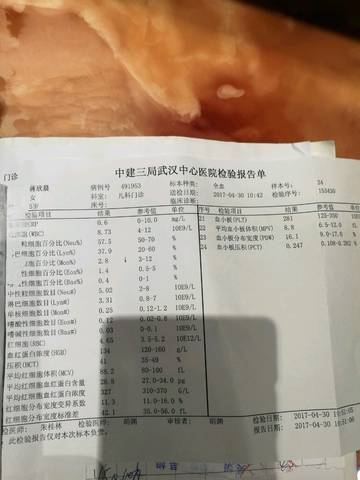 中建三局武汉中心医院检验报告单
门诊
蒋欣晨 病例号 491953 标本种类: 全血 样本号: 24
女 科室: 儿科门诊 送检日期: 2017-04-30 10:42 检验序号:
5岁 床号: 临床诊断:
检验项目 结果 参考值 单位 序号 检验项目 结果 参考值
CRP 0.6 0-10.0 mg/L 21 血小板(PLT) 281
(WBC) 8.73 4-12 10E9/L 22 平均血小板体积(MPV) 8.8 6.5-12.0 fL
粒细胞百分比(Neu%) 57.5 50-70 % 23 血小板分布宽度(PDW) 16.1 9.0-17.0
巴细胞百分比(Lym%) 37.9 20-60 % 24 血小板压积(PCT) 0.247 0.108-0.282 %
细胞百分比(Mon%) 2.8 3-12 %
性细胞百分比(Eos%) 1.4 0.5-5 %
性细胞百分比(Bas%) 0.4 0-1 %
中性粒细胞数目(Neu#) 5.02 2-8 10E9/L
淋巴细胞数目(Lym#) 3.31 0.8-7 10E9/L
单核细胞数目(Mon#) 0.25 0.12-1.2 10E9/L
嗜酸性细胞数目(Eos#) 0.12 0.02-0.8 10E9/L
嗜碱性细胞数目(Bas#) 0.03 0-0.1 10E9/L
红细胞(RBC) 4.65 3.5-5.2 10E12/L
血红蛋白浓度(HGB) 134 120-160 g/L
压积(HCT) 41 35-49 %
平均红细胞体积(MCV) 88.2 80-100 fL
平均红细胞血红蛋白含量 28.8 27.0-34.0 pg
平均红细胞血红蛋白浓度 327 310-370 G/L
红细胞分布宽度变异系数 11.3 11.0-16.0 %
红细胞分布宽度标准差 42.1 35.0-56.0 fL
检医师: 朱桂林 检验医师: 胡渊 审核者: 胡渊 检验日期: 2017-04-30
此检验报告仅对本次标本负责。 报告日期: 2017-04-30